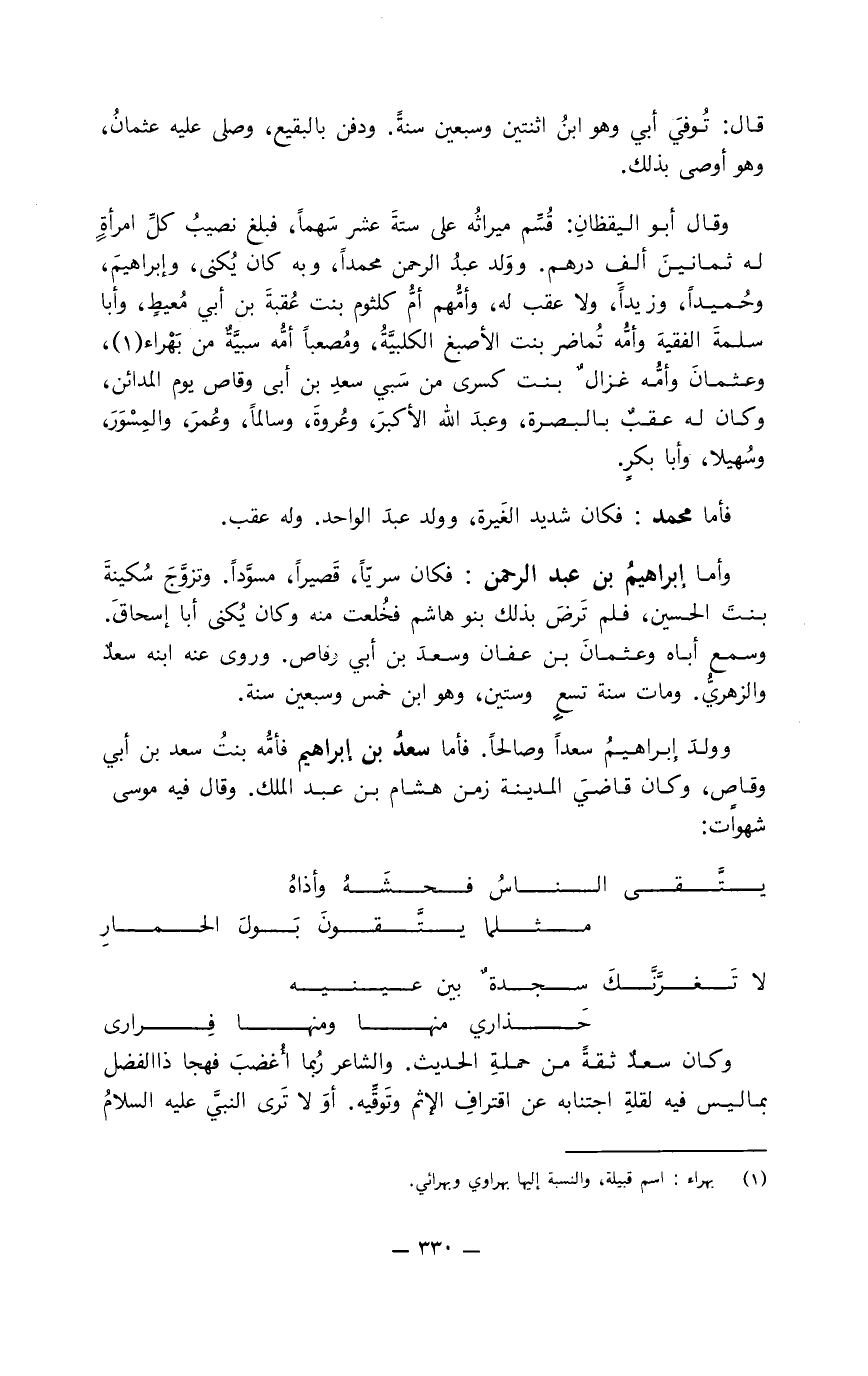 قال: تُوفيَ أبي وهو ابنُ اثنتين وسبعين سنةً. ودفن بالبقيع، وصلى عليه عثمانُ،
وهو أوصى بذلك.
وقال أبو اليقظانِ: قُسِّم ميراثُه على ستةَ عشر سَهماً، فبلغ نصيبُ كلِّ امرأةٍ
له ثمانينَ ألف درهم. ووَلد عبدُ الرحمن محمداً، وبه كان يُكنى، وإبراهيمَ،
وحُميداً، وزيداً، ولا عقب له، وأمُّهم أمُّ كلثوم بنت عُقبةَ بن أبي مُعيطٍ، وأبا
سلمةَ الفقيهَ وأمُّه تُماضر بنت الأصبغ الكلبيَّةُ، ومُصعباً أمُّه سبيَّةٌ من بَهْراء(١)،
وعثمانَ وأمُّه غزالٌ بنت كسرى من سَبي سعدِ بن أبى وقاص يوم المدائن،
وكان له عقبٌ بالبصرة، وعبدَ الله الأكبرَ، وعُروةَ، وسالماً، وعُمرَ، والمِسْوَرَ،
وسُهيلا، وأبا بكرٍ.
فأما محمد : فكان شديد الغَيرة، وولد عبدَ الواحد. وله عقب.
وأما إبراهيمُ بن عبد الرحمن : فكان سريّاً، قَصيراً، مسوَّداً. وتزوَّجَ سُكينةَ
بنتَ الحسين، فلم تَرضَ بذلك بنو هاشم فخُلعت منه وكان يُكنى أبا إسحاقَ.
وسمع أباه وعثمانَ بن عفان وسعدَ بن أبي رفاص. وروى عنه ابنه سعدٌ
والزهريُّ. ومات سنة تسعٍ وستين، وهو ابن خمس وسبعين سنة.
وولدَ إبراهيمُ سعداً وصالحاً. فأما سعدُ بن إبراهيم فأمُّه بنتُ سعد بن أبي
وقاصٍ، وكان قاضيَ المدينة زمن هشام بن عبد الملك. وقال فيه موسى
شهوات:
يتَّقى الناسُ فحشَهُ وأذاهُ
مثلما يتَّقونَ بَولَ الحمارِ
لا تَغرَّنَّكَ سجدةٌ بين عينيه
حَذاري منها ومنها فِرارى
وكان سعدٌ ثقةً من حملةِ الحديث. والشاعر رُبما أُغضبَ فهجا ذاالفضل
بماليس فيه لقلةِ اجتنابه عن اقترافِ الإثم وتَوقِّيه. أوَ لا تَرى النبيَّ عليه السلامُ
(١) بهراء : اسم قبيلة، والنسبة إليها بهراوي وبهرائي.
– ٣٣٠ –